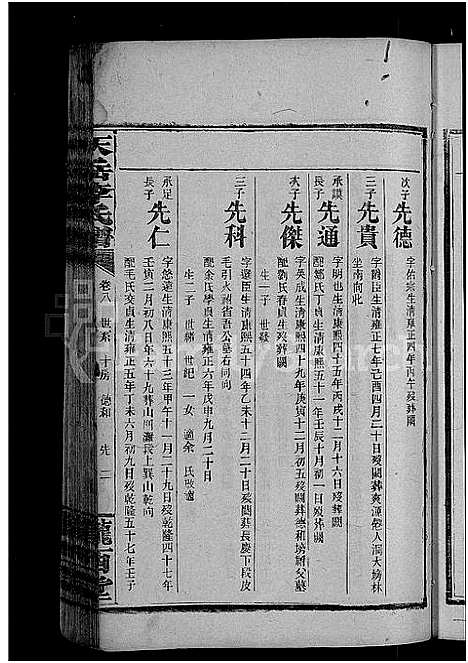 次子
先德
字佑宗生清雍正四年丙午歿葬闕
三子
先貴
字爵臣生清雍正七年己酉四月二十日歿葬
坐南向北
承謨
長子
先通
字明也生清康熙四十五年丙戌十二月十六日歿葬闕
配鄒氏丁貞生清康熙五十一年壬辰十月初一日歿葬闕
次子
先傑
字英成生清康熙四十九年庚寅十二月初五歿闕葬德和塝父墓
配劉氏春貞生歿葬闕
生一子 世發
三子
先科
字選臣生清康熙五十四年乙未十二月二十日歿闕葬長慶下段皮
毛引火形省吾公墓右同向
配余氏學貞生清雍正六年戊申九月二十日
生二子 世緒 世紀 一女 適余 氏改適
承足
長子
先仁
字悠遠生清康熙五十三年甲午十一月二十九日歿乾隆四十七年
壬寅二月初八日年六十九葬山田灘長上巽山乾向
配毛氏交貞生清雍正五年丁未六月初九日歿乾隆五十七年壬子
天岳李氏譜
卷八 世系 十房 德和 先 二
隴西堂